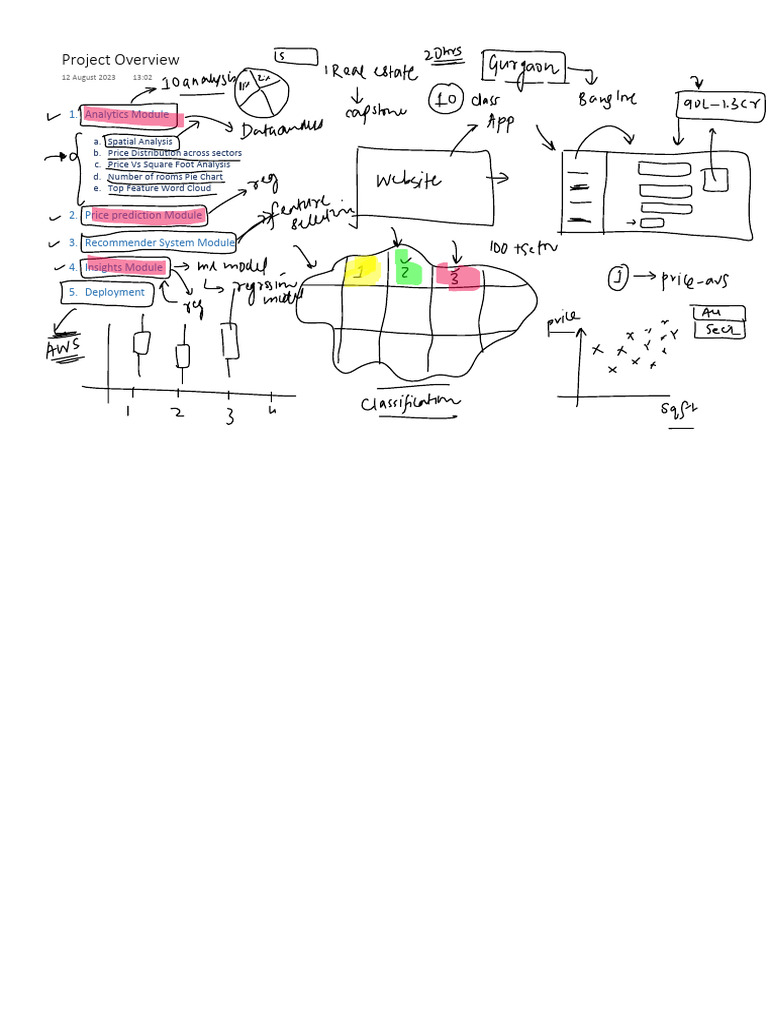 Project Overview
12 August 2023 13:02
s
1 Real estate
capstone
20hrs
10 class
App
Gurgaon
90L-1.3Cr
10 analysis
1. Analytics Module
a. Spatial Analysis
b. Price Distribution across sectors
c. Price Vs Square Foot Analysis
d. Number of rooms Pie Chart
e. Top Feature Word Cloud
reg
2. Price prediction Module
feature
selection
3. Recommender System Module
4. Insights Module
ml model
reg
5. Deployment
AWS
1 2 3 4
website
1 2 3
Classification
1 → price-avg
price
sqft